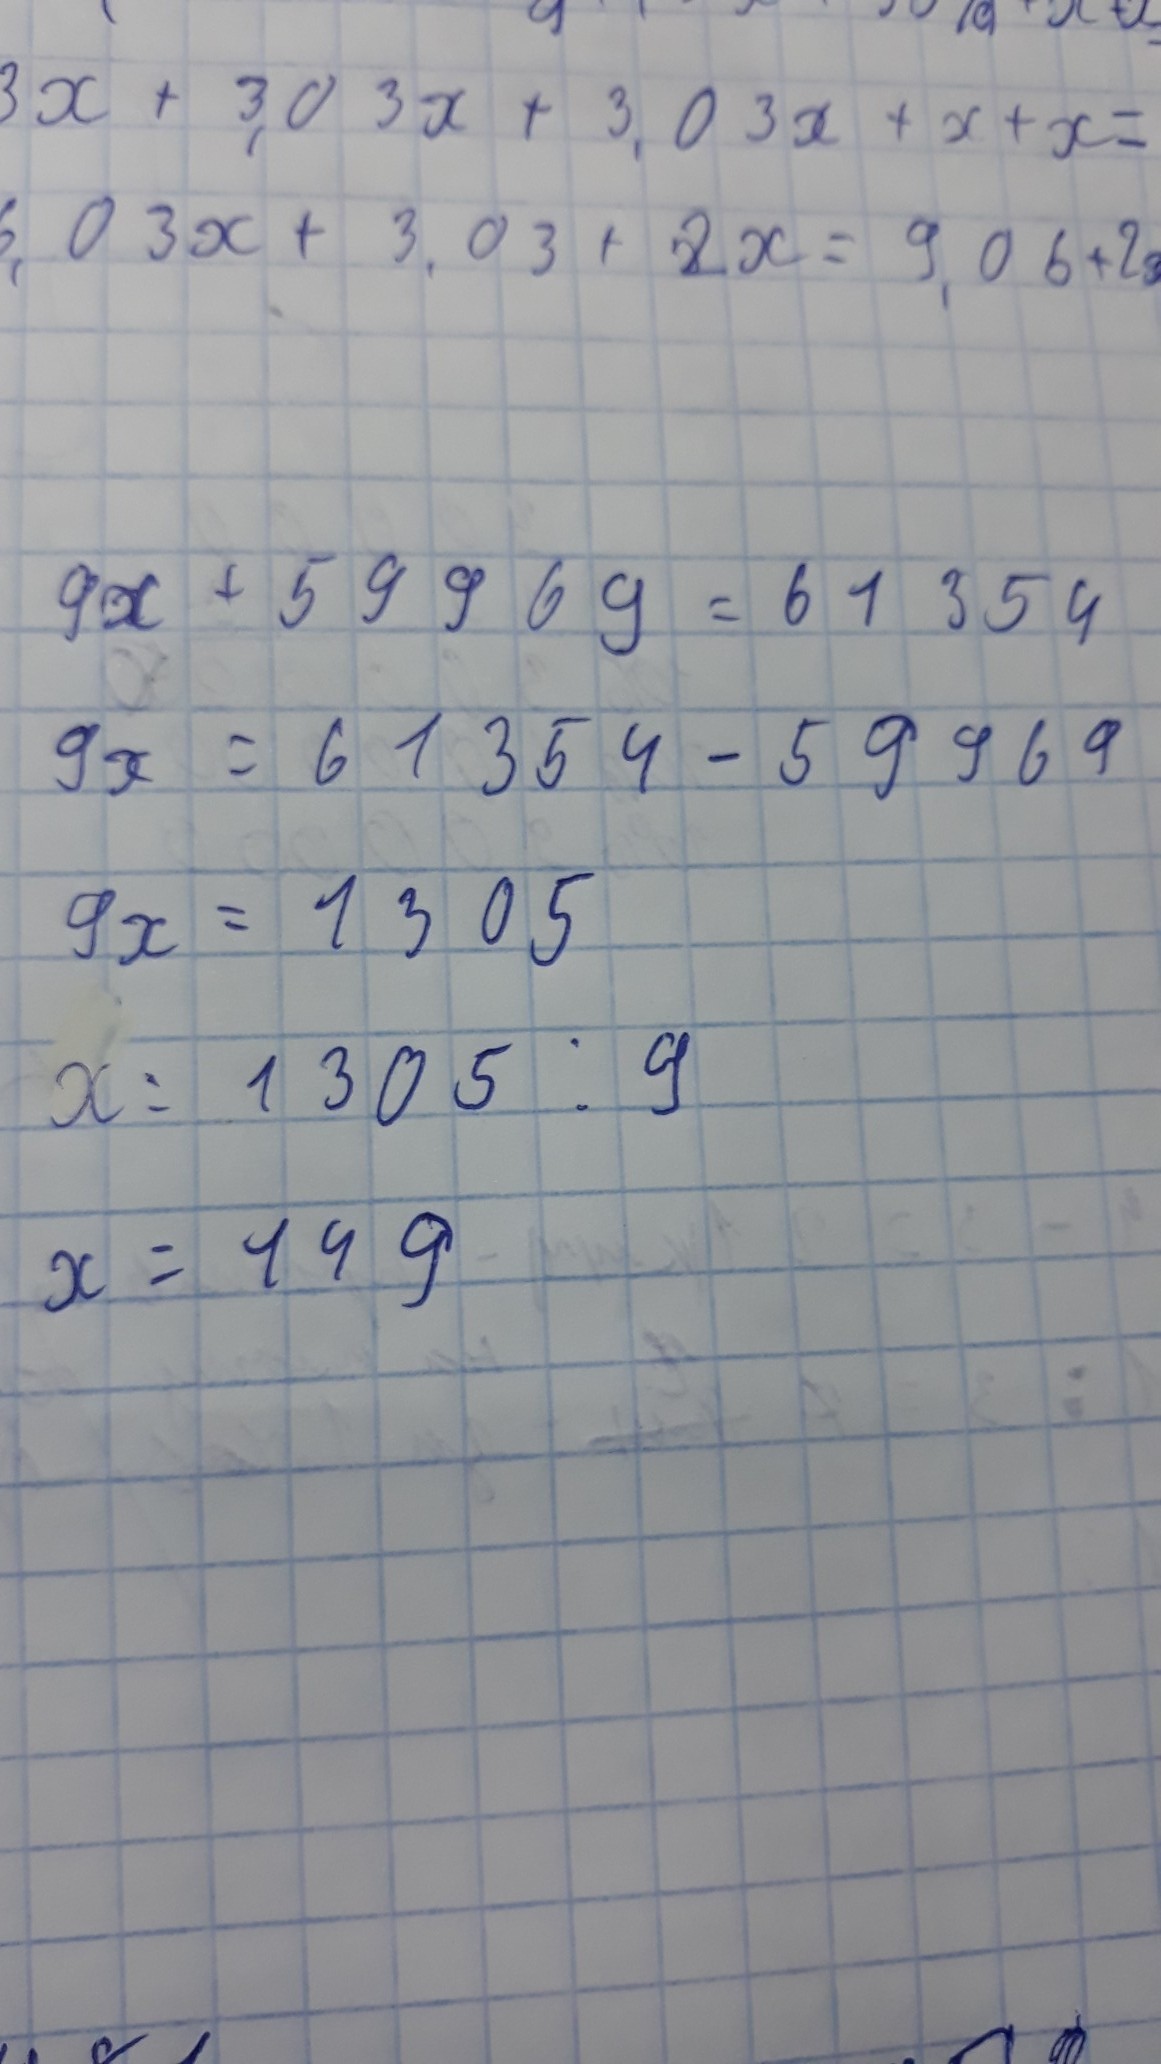 3x + 3,03x + 3,03x + x + x =
6,03x + 3,03 + 2x = 9,06 + 2x
9x + 59969 = 61354
9x = 61354 - 59969
9x = 1305
x = 1305 : 9
x = 149